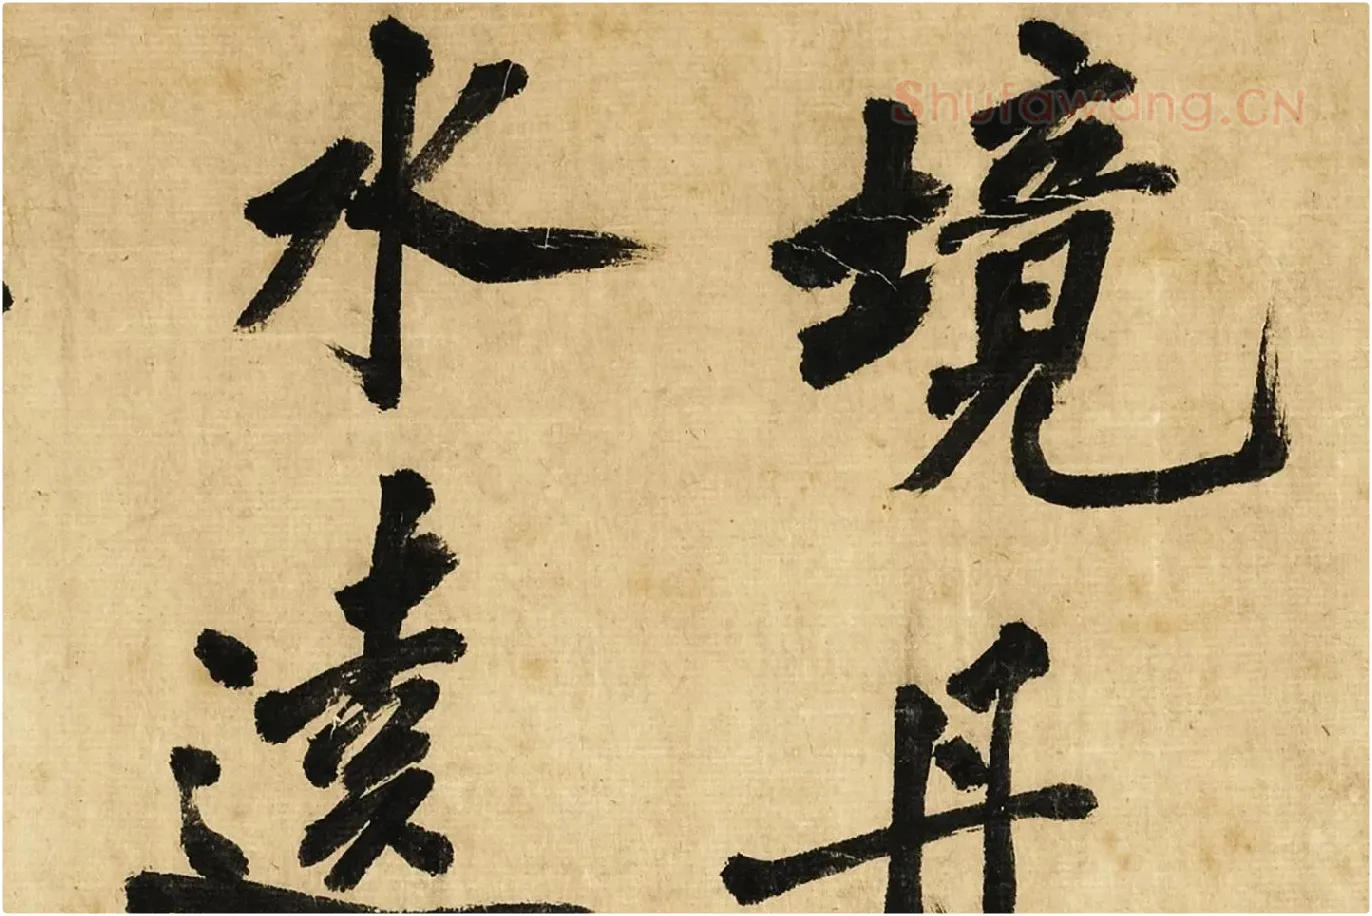 Shufawang.CN
境丹
水遠